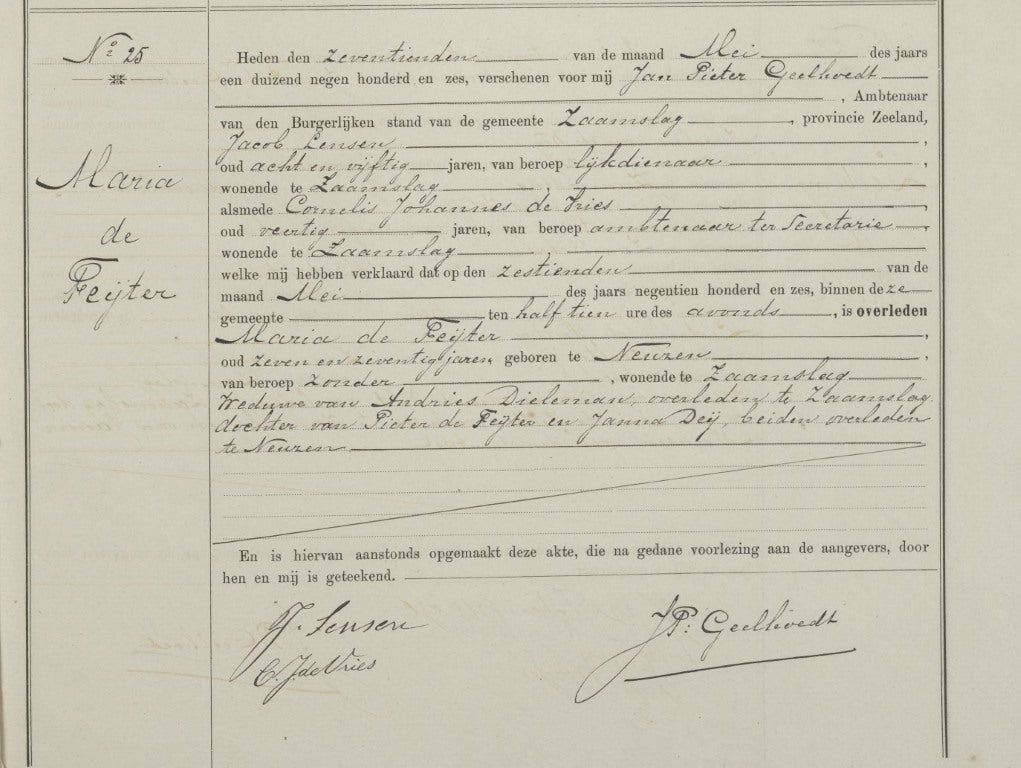 No 25
Maria
de
Feijter
Heden den zeventienden van de maand Mei des jaars
een duizend negen honderd en zes, verschenen voor mij Jan Pieter Geelhoedt
, Ambtenaar
van den Burgerlijken stand van de gemeente Zaamslag, provincie Zeeland,
Jacob Lensen,
oud acht en vijftig jaren, van beroep lijkdienaar,
wonende te Zaamslag,
alsmede Cornelis Johannes de Vries,
oud veertig jaren, van beroep ambtenaar ter Secretarie,
wonende te Zaamslag,
welke mij hebben verklaard dat op den zestienden van de
maand Mei des jaars negentien honderd en zes, binnen deze
gemeente ten half tien ure des avonds, is overleden
Maria de Feijter,
oud zeven en zeventig jaren, geboren te Neuzen,
van beroep zonder, wonende te Zaamslag
Weduwe van Andries Dieleman, overleden te Zaamslag,
dochter van Pieter de Feijter en Janna Deij, beiden overleden
te Neuzen
En is hiervan aanstonds opgemaakt deze akte, die na gedane voorlezing aan de aangevers, door
hen en mij is geteekend.
J. Lensen
JP: Geelhoedt
C. J. de Vries